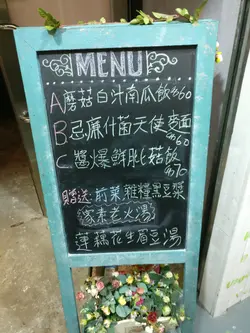 MENU
A蘑菇白汁南瓜飯$60
B.忌廉什菌天使麵$60
C醬爆鮮肶菇飯$70
贈送:前菜,雜糧黑豆漿
家素老火湯
蓮藕花生眉豆湯